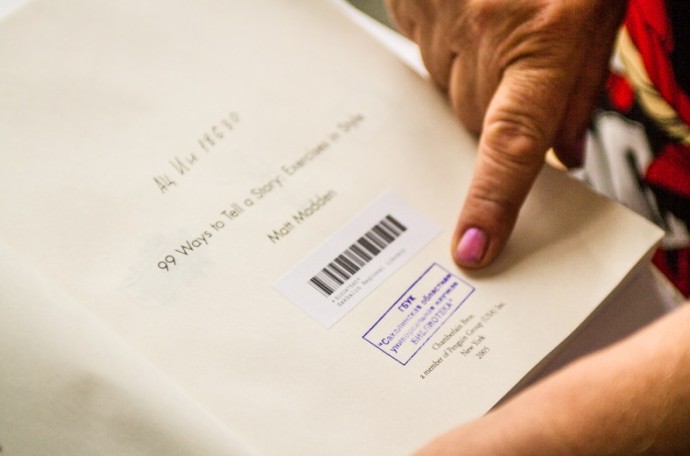 Ац Ин 18680
99 Ways to Tell a Story: Exercises in Style
Matt Madden
Sakhalin Regional
ГБУК
"Сахалинская областная
универсальная научная
БИБЛИОТЕКА"
Chamberlain Bros.
a member of Penguin Group (USA) Inc.
New York
2005